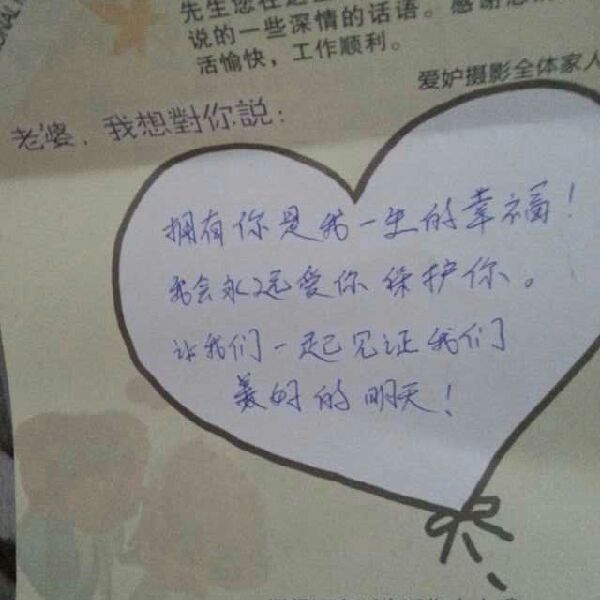 先生您在这
说的一些深情的话语。感谢您
活愉快，工作顺利。
爱妒摄影全体家人
老婆，我想對你説：
拥有你是我一生的幸福！
我会永远爱你保护你。
让我们一起见证我们
美好的明天！